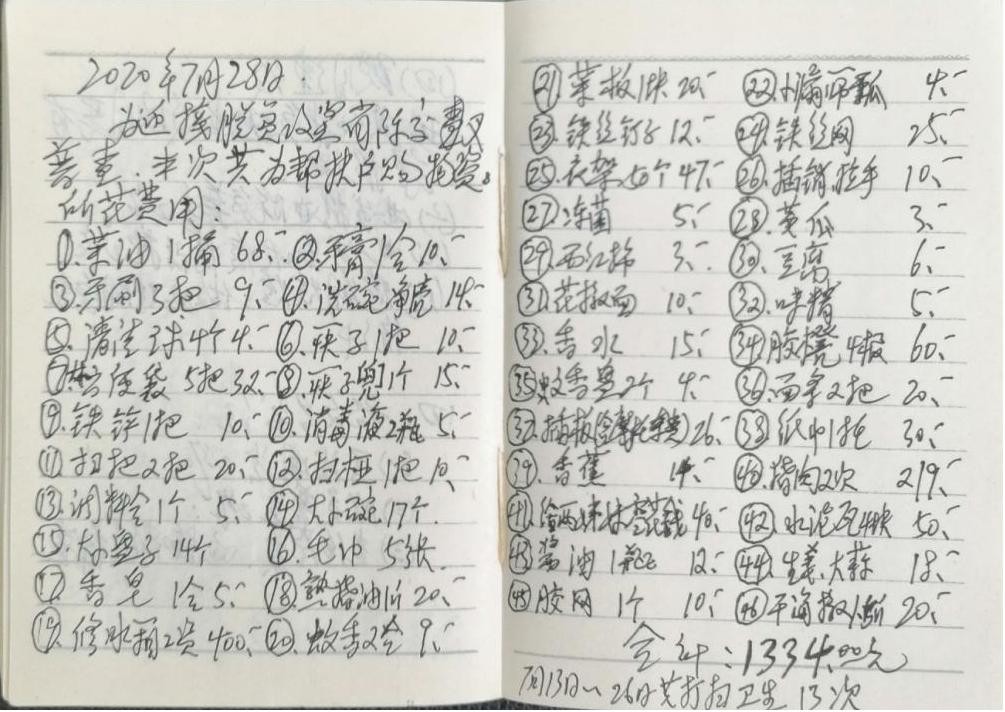 2020年7月28日.
为迎接脱贫攻坚省际交叉
普查.本次共为帮扶户购物资
所花费用:
①.菜油1桶 68.- ②牙膏1合10.-
③.牙刷3把 9.- ④.洗碗净亮 14.-
⑤.清洁球4个4.- ⑥.快子1把 10.-
⑦方便袋 5把32.- ⑧.快子兜1个 15.-
⑨.铁 1把 10.- ⑩.消毒液2瓶 5.-
⑪.扫把2把 20.- ⑫.扫 1把10.-
⑬.调料合1个 5.- ⑭.大小碗17个.
⑮.大小盘子14个 ⑯.毛巾 5张.
⑰.香皂 1合5.- ⑱.熟猪油1斤20.-
⑲.修水 工资400.- ⑳.蚊香2合 9.-
㉑菜板1块20.- ㉒.小 瓢 4.-
㉓.铁丝钉子12.- ㉔.铁丝网 25.-
㉕.衣架 个47.- ㉖.插销.拉手 10.-
㉗.冻菌 5.- ㉘.黄瓜 3.-
㉙.西红柿 3.- ㉚.豆腐 6.-
㉛.花椒面 10.- ㉜.味精 5.-
㉝.香水 15.- ㉞.胶凳4根 60.-
㉟蚊香盘2个 4.- ㊱.雨伞2把 20.-
㊲.插板 26.- ㊳.纸巾1托 30.-
㊴.香蕉 14.- ㊵.猪肉2次 219.-
㊶. 40.- ㊷.水泥瓦4块 50.-
㊸.酱油1瓶 12.- ㊹.生姜.大蒜 18.-
㊺胶网 1个 10.- ㊻.干海椒1斤20.-
合计:1334.00元
7月13日~26日共打扫卫生13次